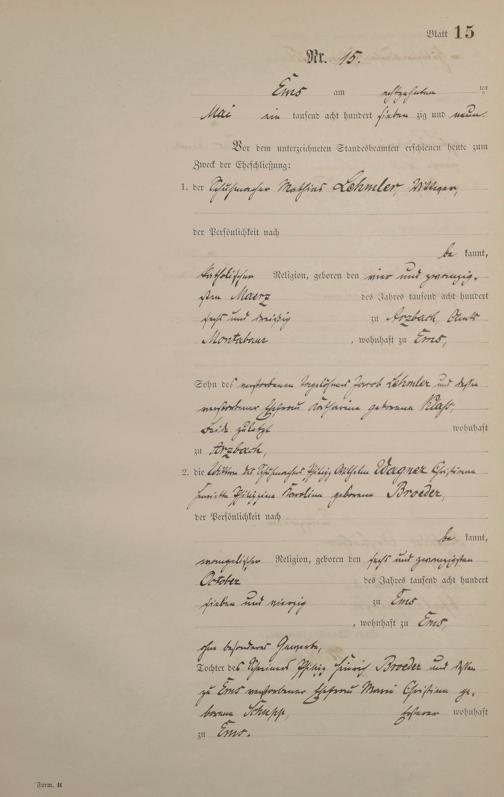 Blatt 15
Nr. 15.
Ems am achtzehnten ten
Mai ein tausend acht hundert siebenzig und neun.
Vor dem unterzeichneten Standesbeamten erschienen heute zum
Zweck der Eheschließung:
1. der Schuhmacher Mathias Lehmler, Wittwer,
der Persönlichkeit nach
bekannt,
katholischer Religion, geboren den vier und zwanzig-
sten Maerz des Jahres tausend acht hundert
sechs und dreißig zu Arzbach, Amts
Montabaur, wohnhaft zu Ems,
Sohn des verstorbenen Tagelöhners Jacob Lehmler und dessen
verstorbener Ehefrau Katharina geborene Klaß,
Beide zuletzt wohnhaft
zu Arzbach,
2. die Wittwe des Schuhmachers Philipp Wilhelm Wagner Christiane
Henriette Philippine Karoline geborene Broeder,
der Persönlichkeit nach
bekannt,
evangelischer Religion, geboren den sechs und zwanzigsten
October des Jahres tausend acht hundert
sieben und vierzig zu Ems
, wohnhaft zu Ems,
ohne besonderes Gewerbe,
Tochter des Schreiners Philipp Heinrich Broeder und dessen
zu Ems verstorbener Ehefrau Marie Christine ge-
borene Schupp, Ersterer wohnhaft
zu Ems.
Form. B